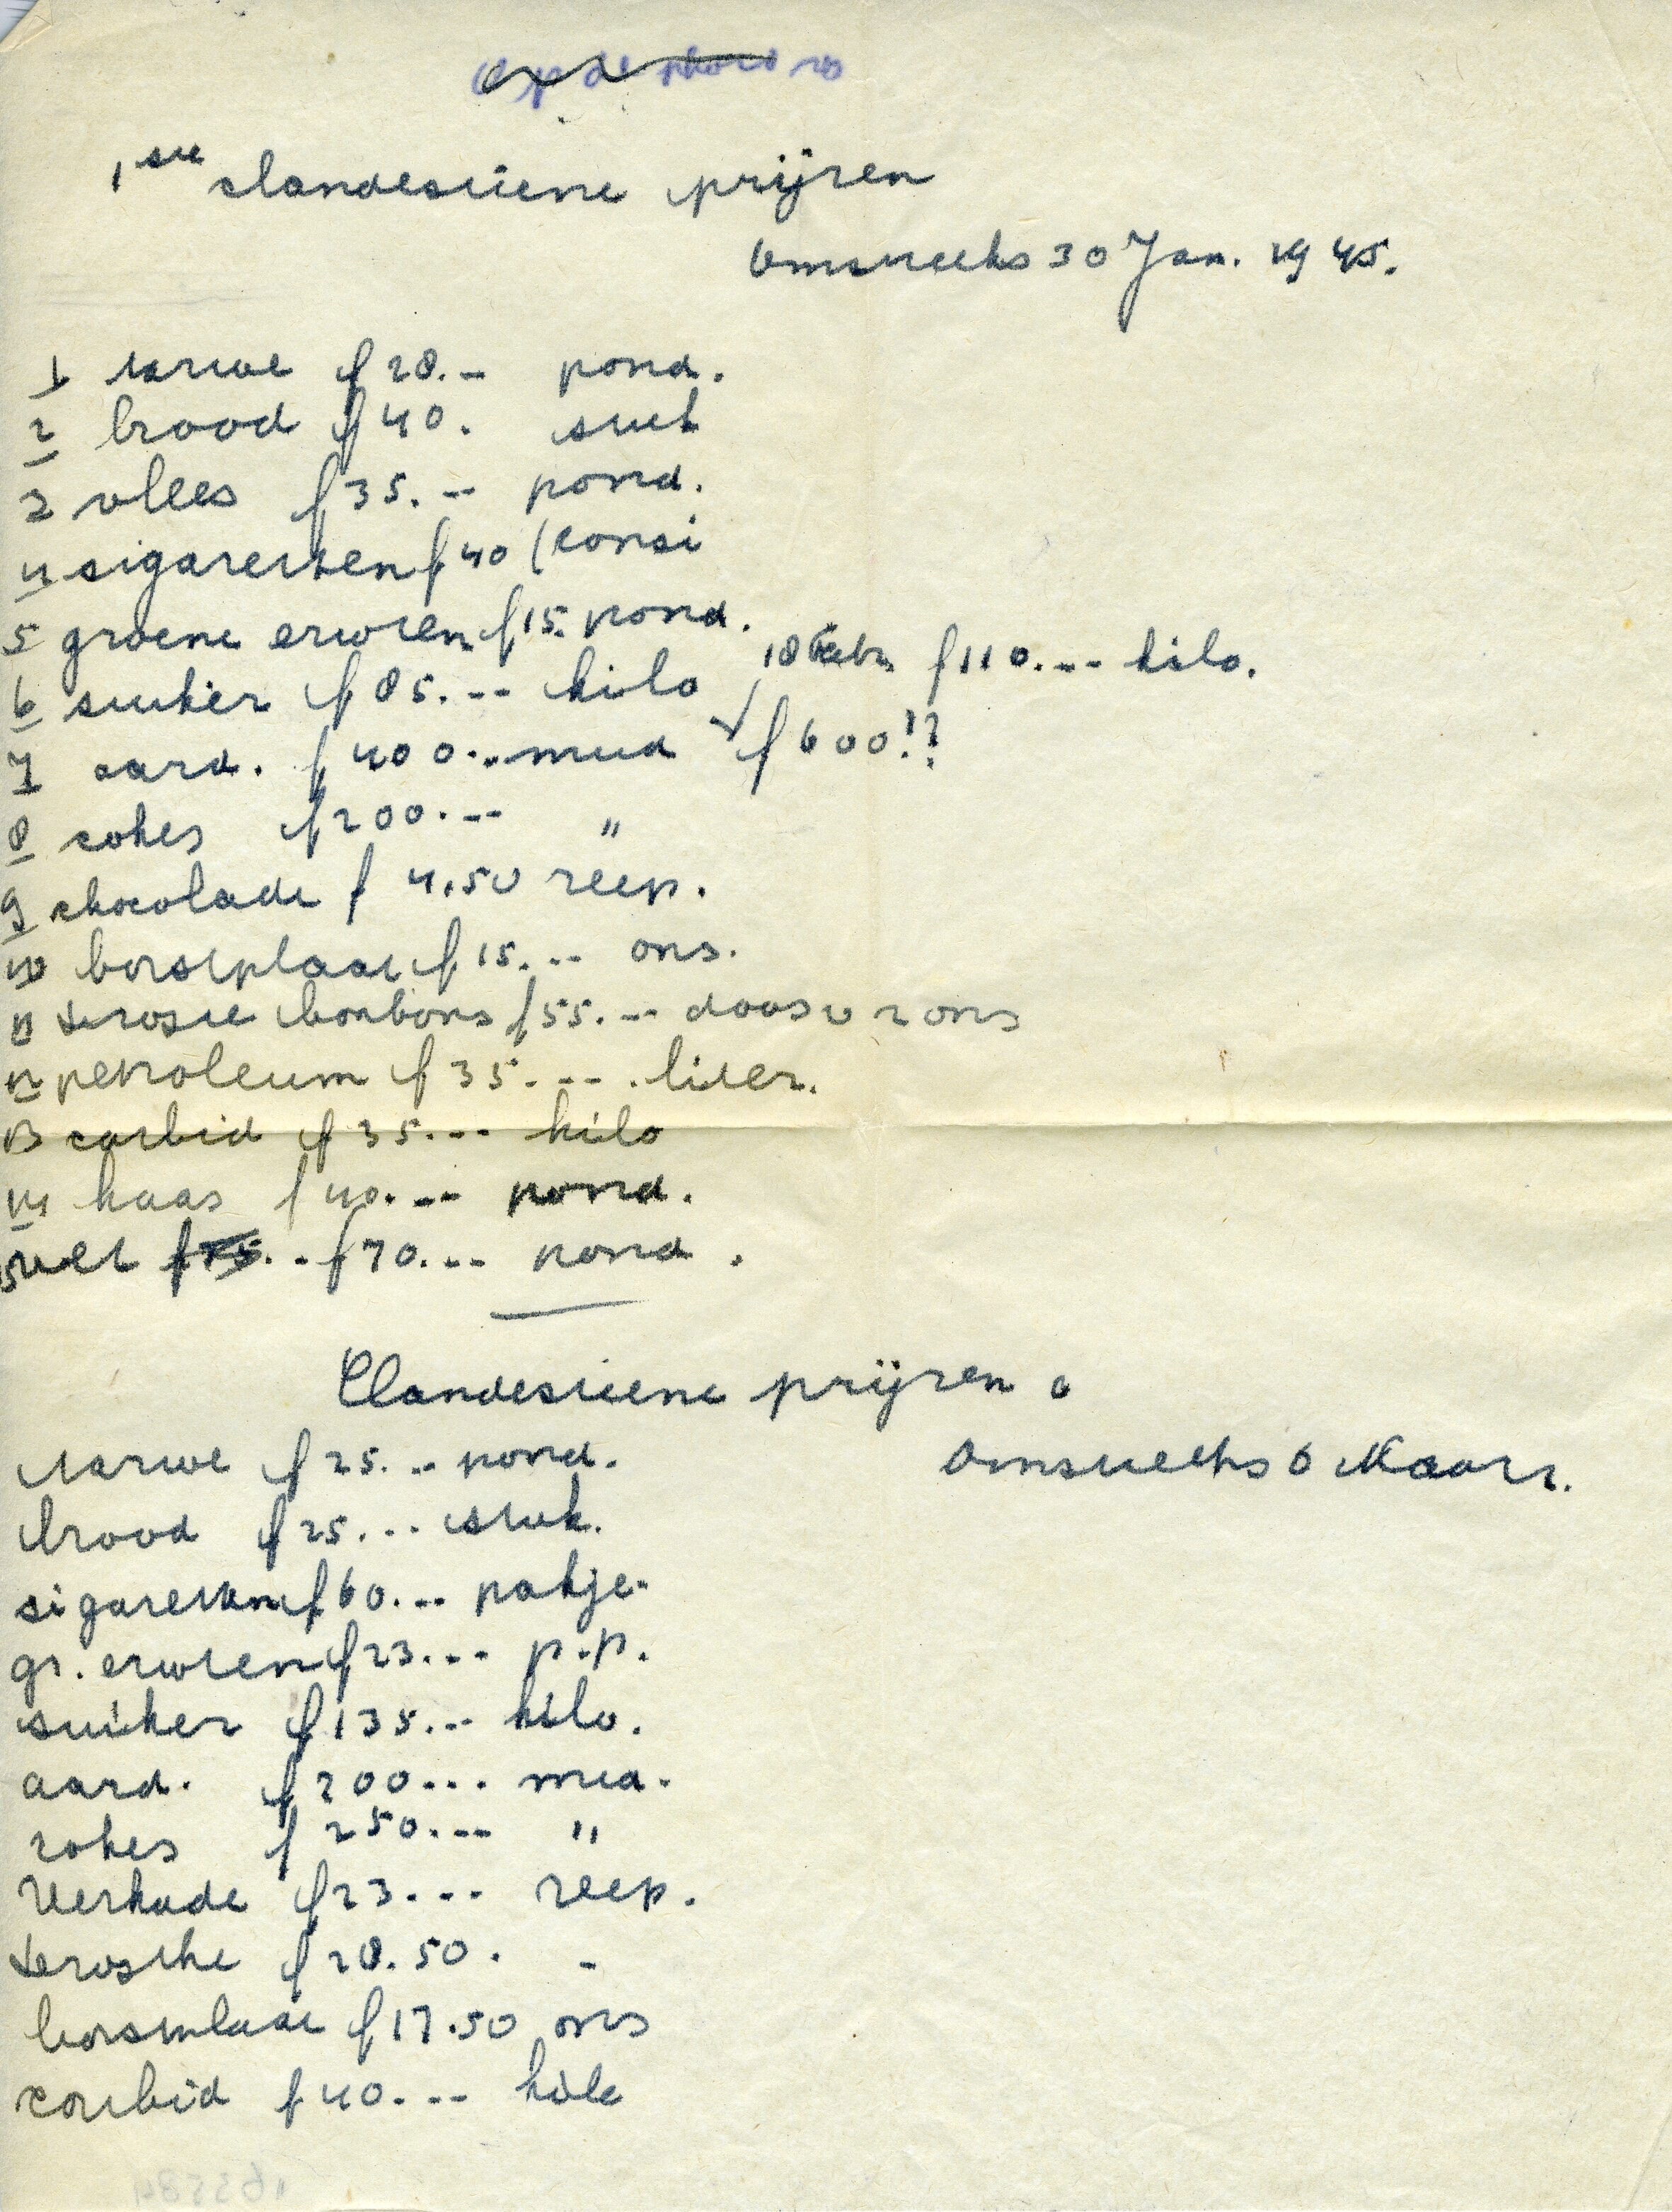 op de photo's
1ste clandestiene prijzen
Omstreeks 30 Jan. 1945.
1 tarwe f 28.-- pond.
2 brood f 40. stuk
3 vlees f 35.-- pond.
4 sigaretten f 40 (Consi
5 groene erwten f 15. pond.
18 Febr. f 110.-- kilo.
6 suiker f 85.-- kilo
7 aard. f 400.-- mud f 600!?
8 cokes f 200.-- "
9 chocolade f 4.50 reep.
10 borstplaat f 15.-- ons.
11 bonbons f 55.-- doos v 2 ons
12 petroleum f 35.-- liter.
13 carbid f 35.-- kilo
14 kaas f 40.-- pond.
15 vet f 75.- f 70.-- pond.
Clandestiene prijzen.
Omstreeks 6 Maart.
tarwe f 25.-- pond.
brood f 25.-- stuk.
sigaretten f 60.-- pakje.
gr. erwten f 23.-- p.p.
suiker f 135.-- kilo.
aard. f 700.-- mud.
cokes f 250.-- "
Verkade f 23.-- reep.
f 28.50. -
borstplaat f 17.50 ons
carbid f 40.-- kilo